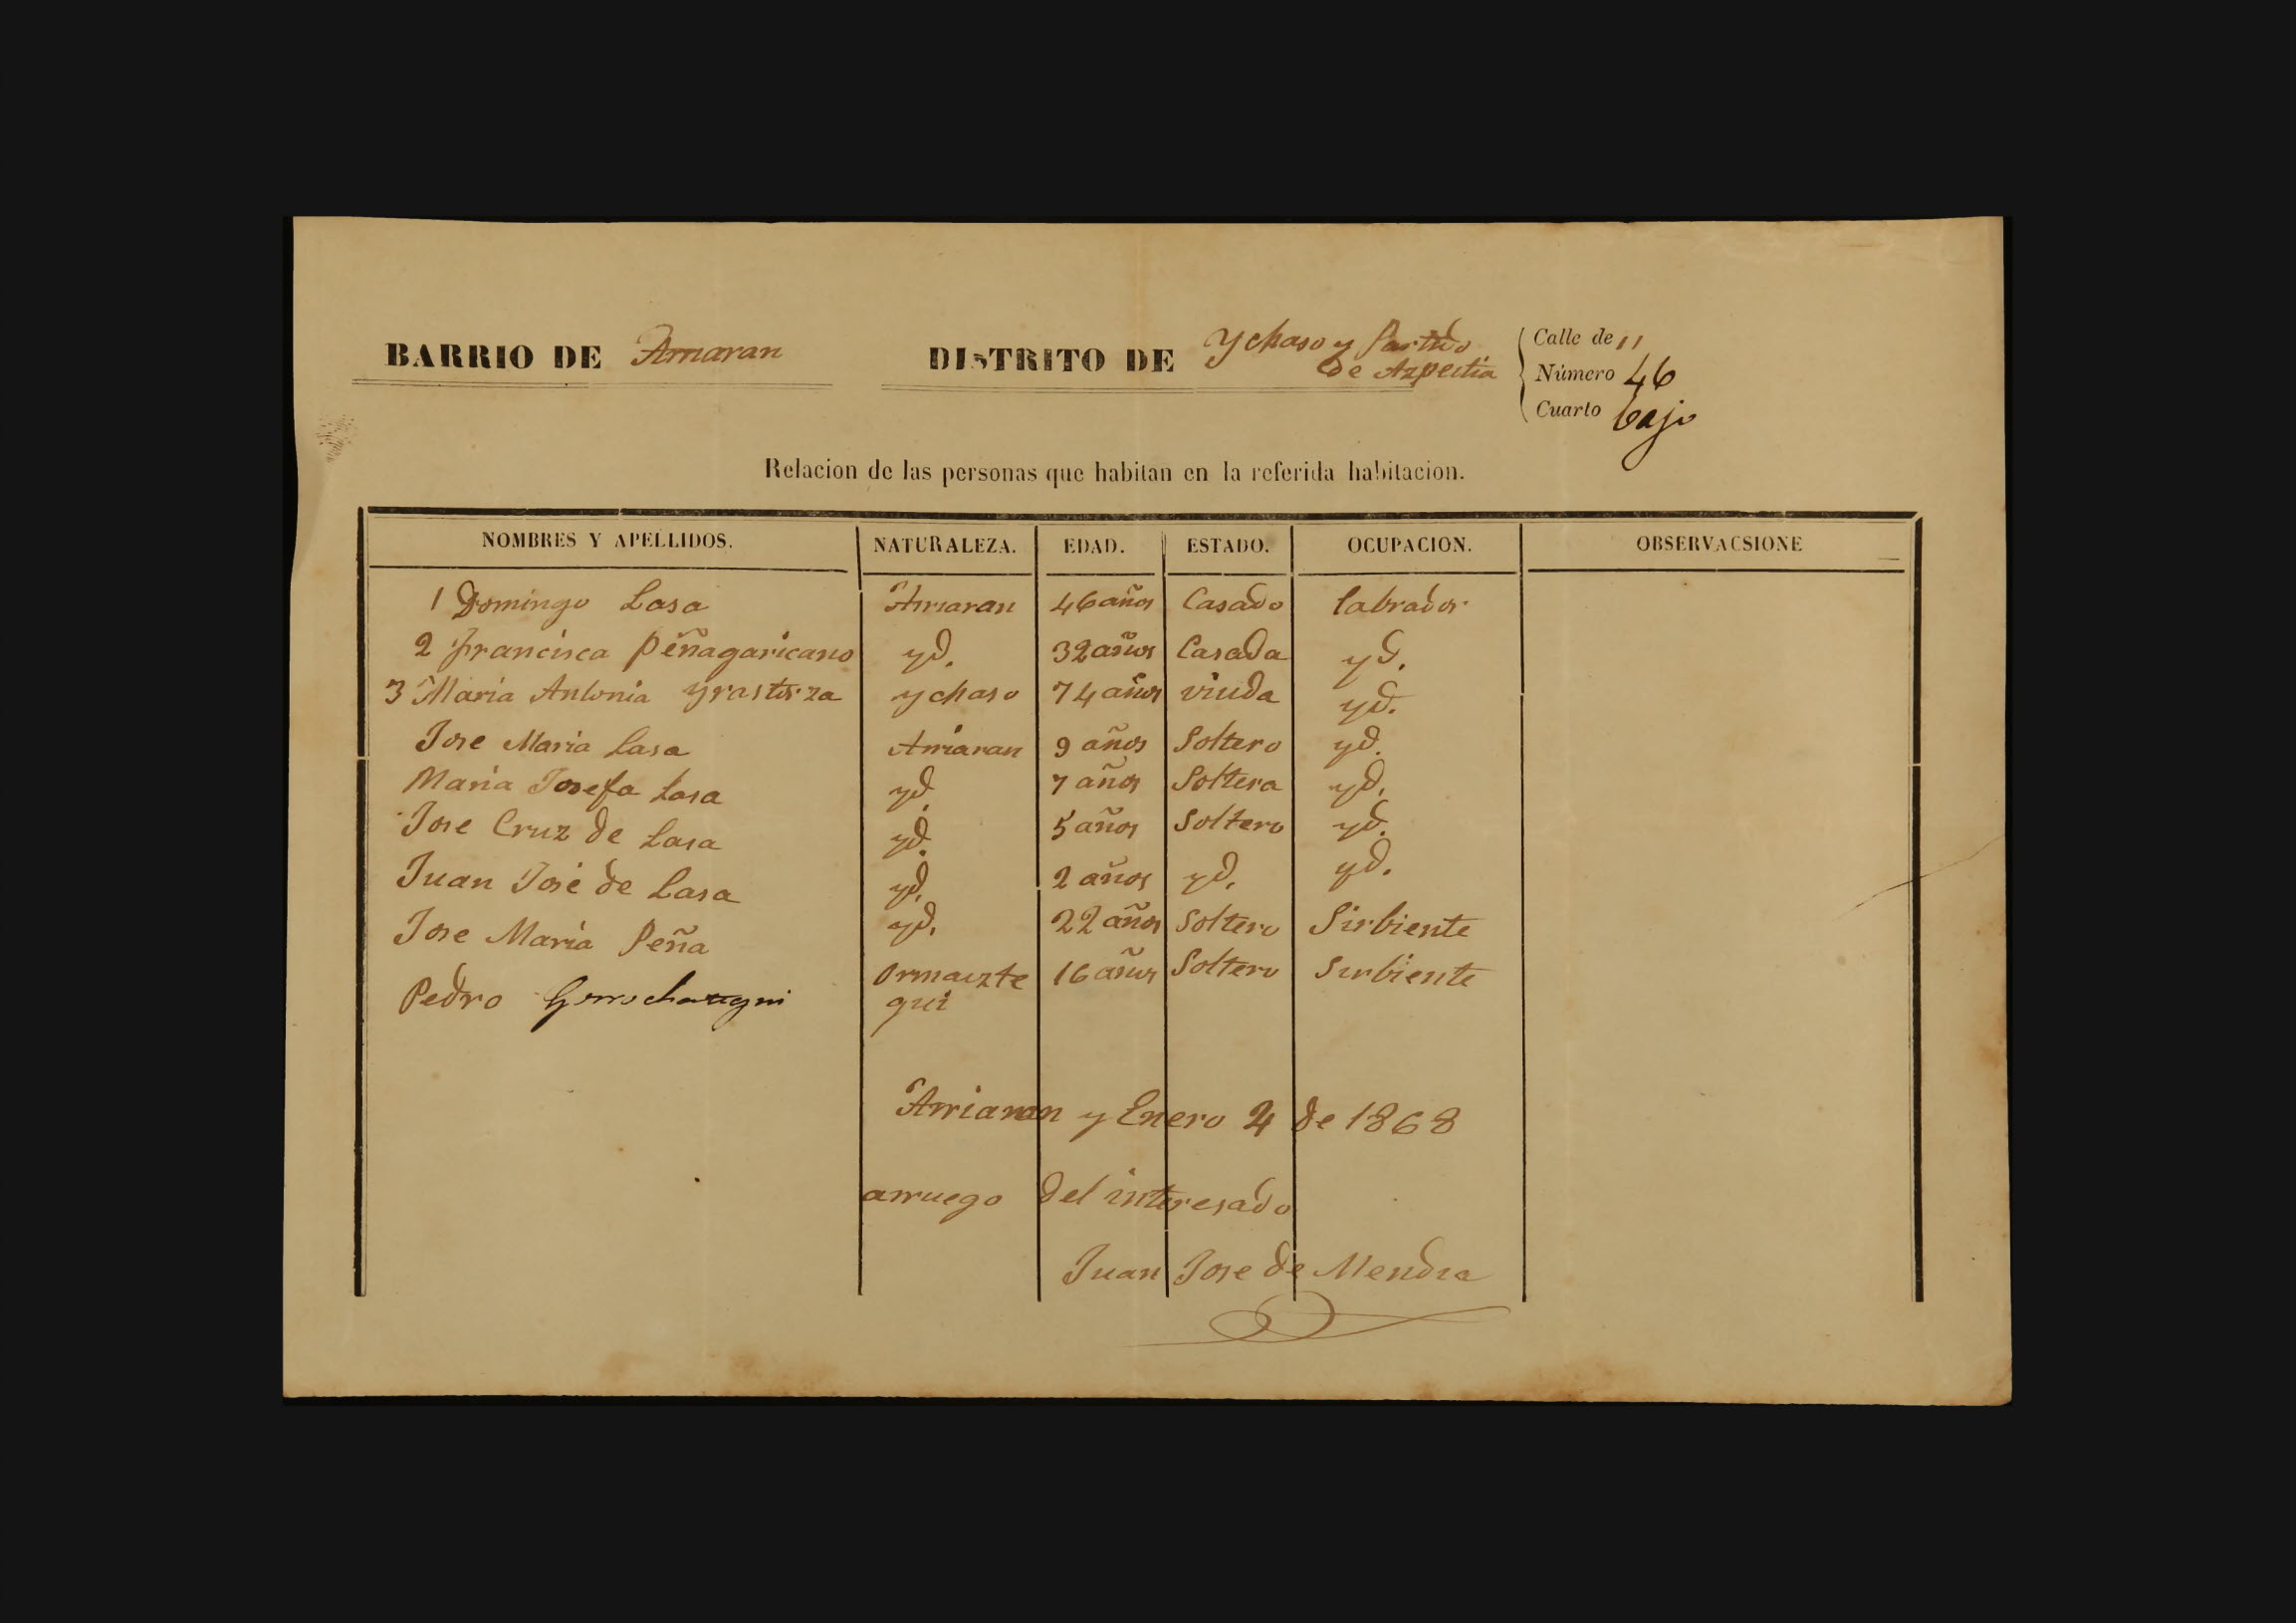 BARRIO DE Arriaran DISTRITO DE Ychaso y Partido
de Azpeitia
Calle de 11
Número 46
Cuarto bajo
Relacion de las personas que habitan en la referida habitacion.
NOMBRES Y APELLIDOS. NATURALEZA. EDAD. ESTADO. OCUPACION. OBSERVACSIONE
1 Domingo Lasa Arriaran 46 años Casado labrador
2 Francisca Peñagaricano yd. 32 años Casada yd.
3 Maria Antonia yrastorza ychaso 74 años viuda yd.
Jose Maria Lasa Arriaran 9 años Soltero yd.
Maria Josefa Lasa yd. 7 años Soltera yd.
Jose Cruz de Lasa yd. 5 años Soltero yd.
Juan José de Lasa yd. 2 años yd. yd.
Jose Maria Peña yd. 22 años Soltero Sirbiente
Pedro Ormaizte 16 años Soltero Sirbiente
gui
Arriaran y Enero 4 de 1868
arruego del interesado
Juan Jose de Mendia